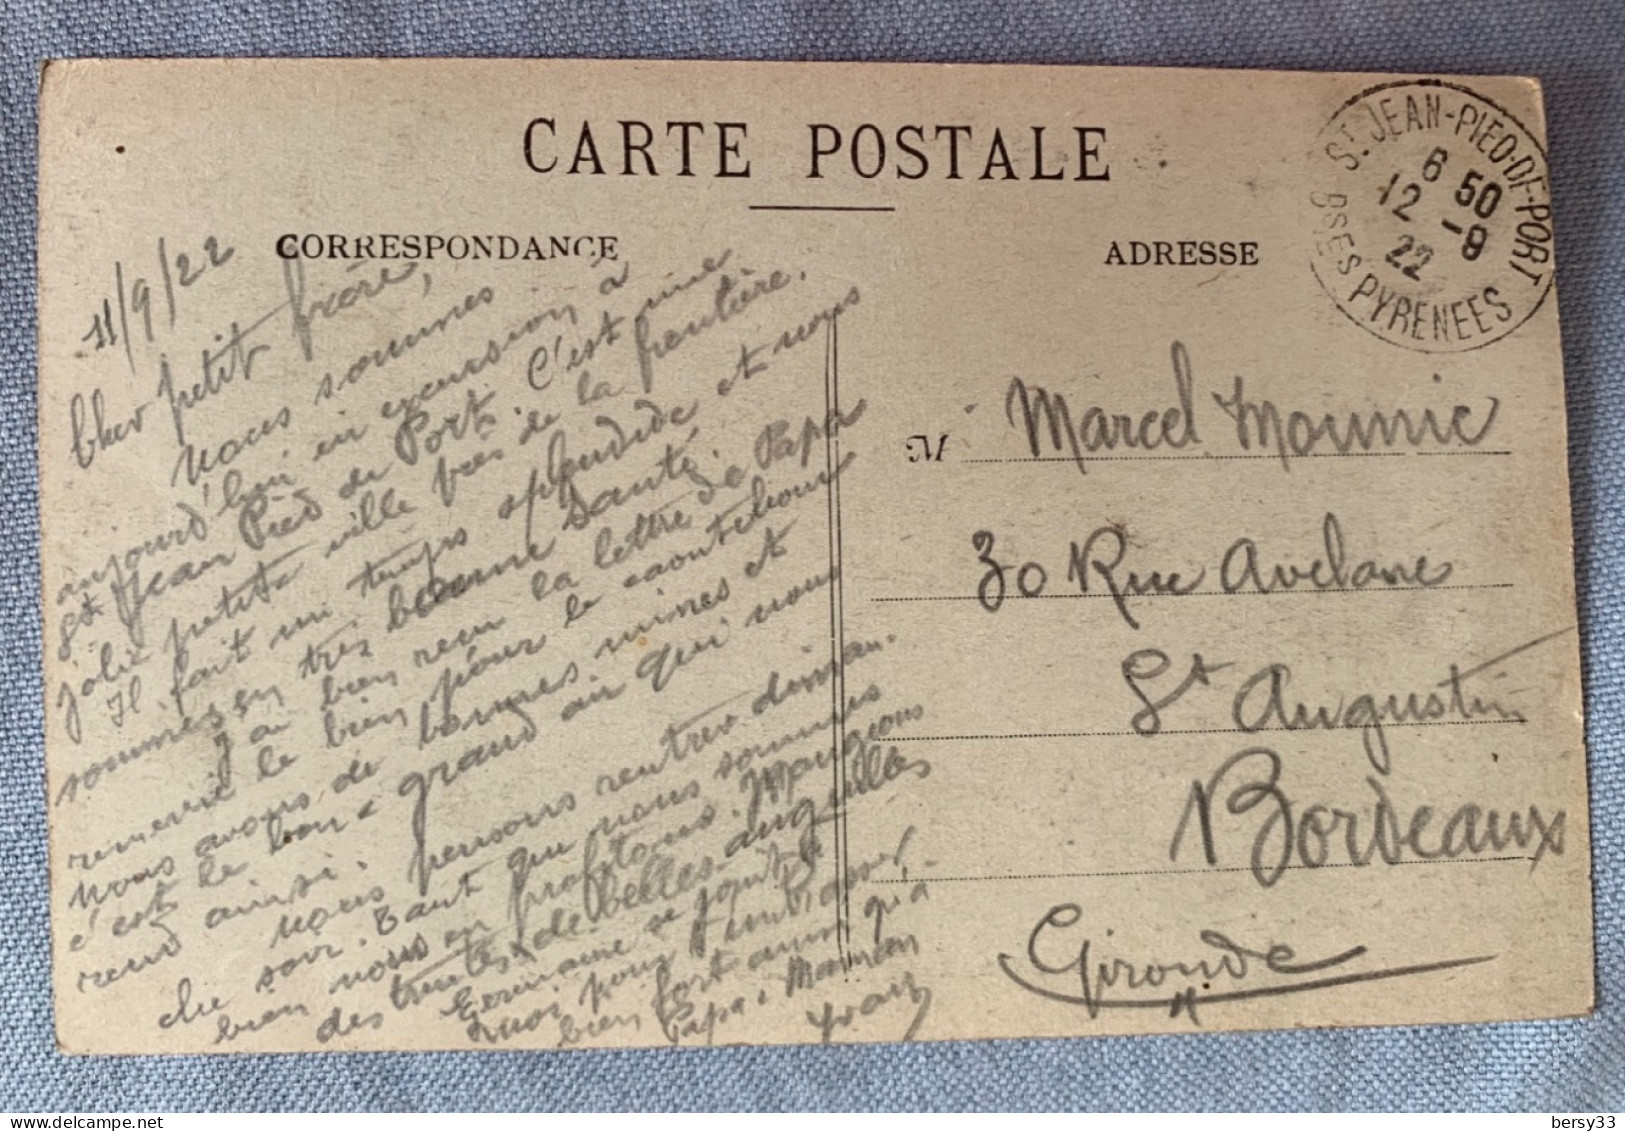 CARTE POSTALE
CORRESPONDANCE
ADRESSE
ST JEAN-PIED-DE-PORT
6 50
12 -9
22
BSES PYRENEES
11/9/22
Cher petit frère,
Nous sommes
aujourd'hui en excursion à
St Jean Pied de Port. C'est une
jolie petite ville près de la frontière.
Il fait un temps splendide et nous
sommes en très bonne santé.
J'ai bien reçu la lettre de Papa
remercie le bien pour le caoutchouc
nous avons de bonnes mines et
c'est le bon grand air qui nous
rend ainsi.
Nous pensons rentrer diman-
che soir. Tant que nous sommes
bien nous en profitons. Mangeons
des truites & de belles anguilles
Germaine se joint à
moi pour t'embrasser
bien fort ainsi qu'à
Papa & Maman
Yvan
M Marcel Mounic
30 Rue Avelane
St Augustin
Bordeaux
Gironde
bersy33